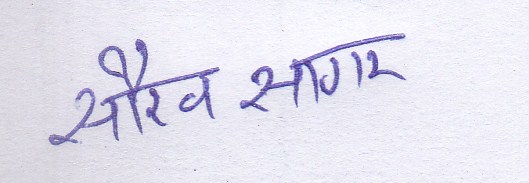 सौरव सागर